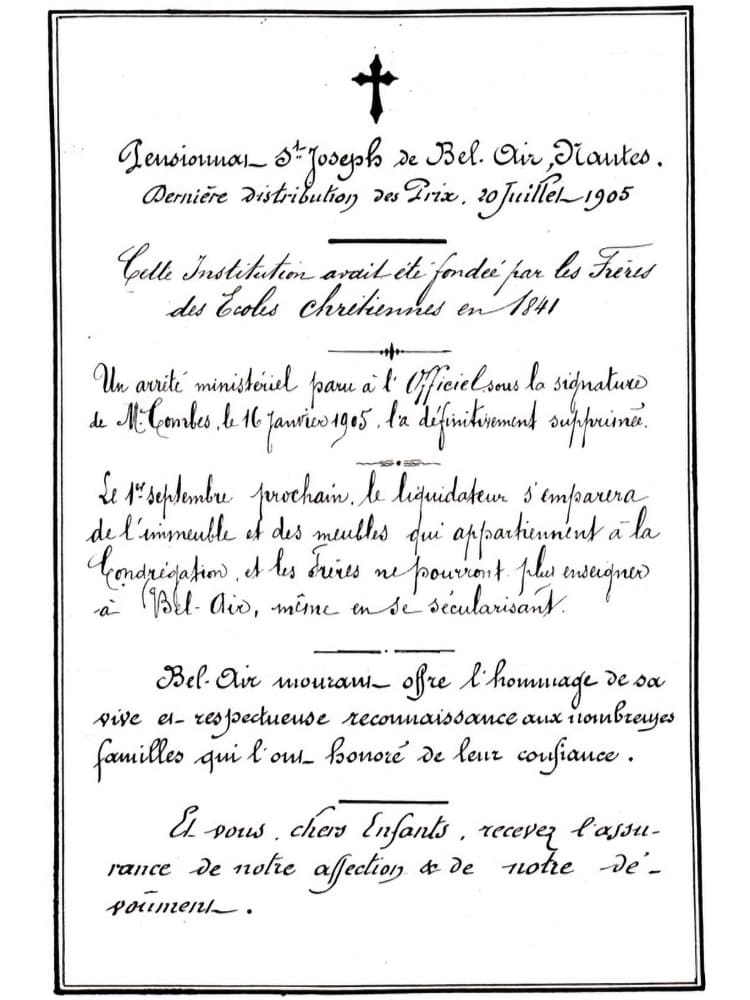 Pensionnat St Joseph de Bel-Air, Nantes.
Dernière distribution des Prix, 20 Juillet 1905
Cette Institution avait été fondée par les Frères
des Ecoles chrétiennes en 1841
Un arrêté ministériel paru à l'Officiel sous la signature
de Mr. Combes, le 16 Janvier 1905, l'a définitivement supprimée.
Le 1er septembre prochain, le liquidateur s'emparera
de l'immeuble et des meubles qui appartiennent à la
Congrégation, et les Frères ne pourront plus enseigner
à Bel-Air, même en se sécularisant.
Bel-Air mourant offre l'hommage de sa
vive et respectueuse reconnaissance aux nombreuses
familles qui l'ont honoré de leur confiance.
Et vous, chers Enfants, recevez l'assu-
rance de notre affection & de notre dé-
voûment.